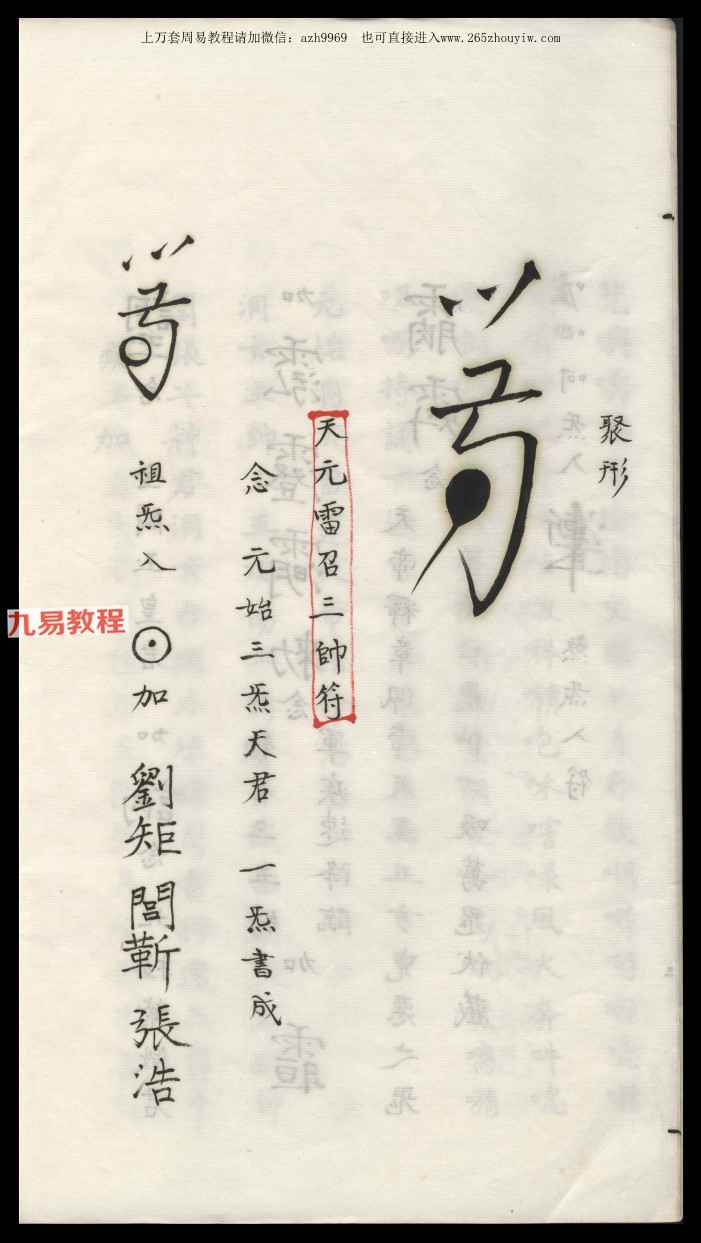 上万套周易教程请加微信：azh9969 也可直接进入www.265zhouyiw.com
聚形
天元雷召三帥符
念 元始三炁天君 一炁書成
祖炁入 ⊙ 加 劉矩 閻蘄 張浩
九易教程